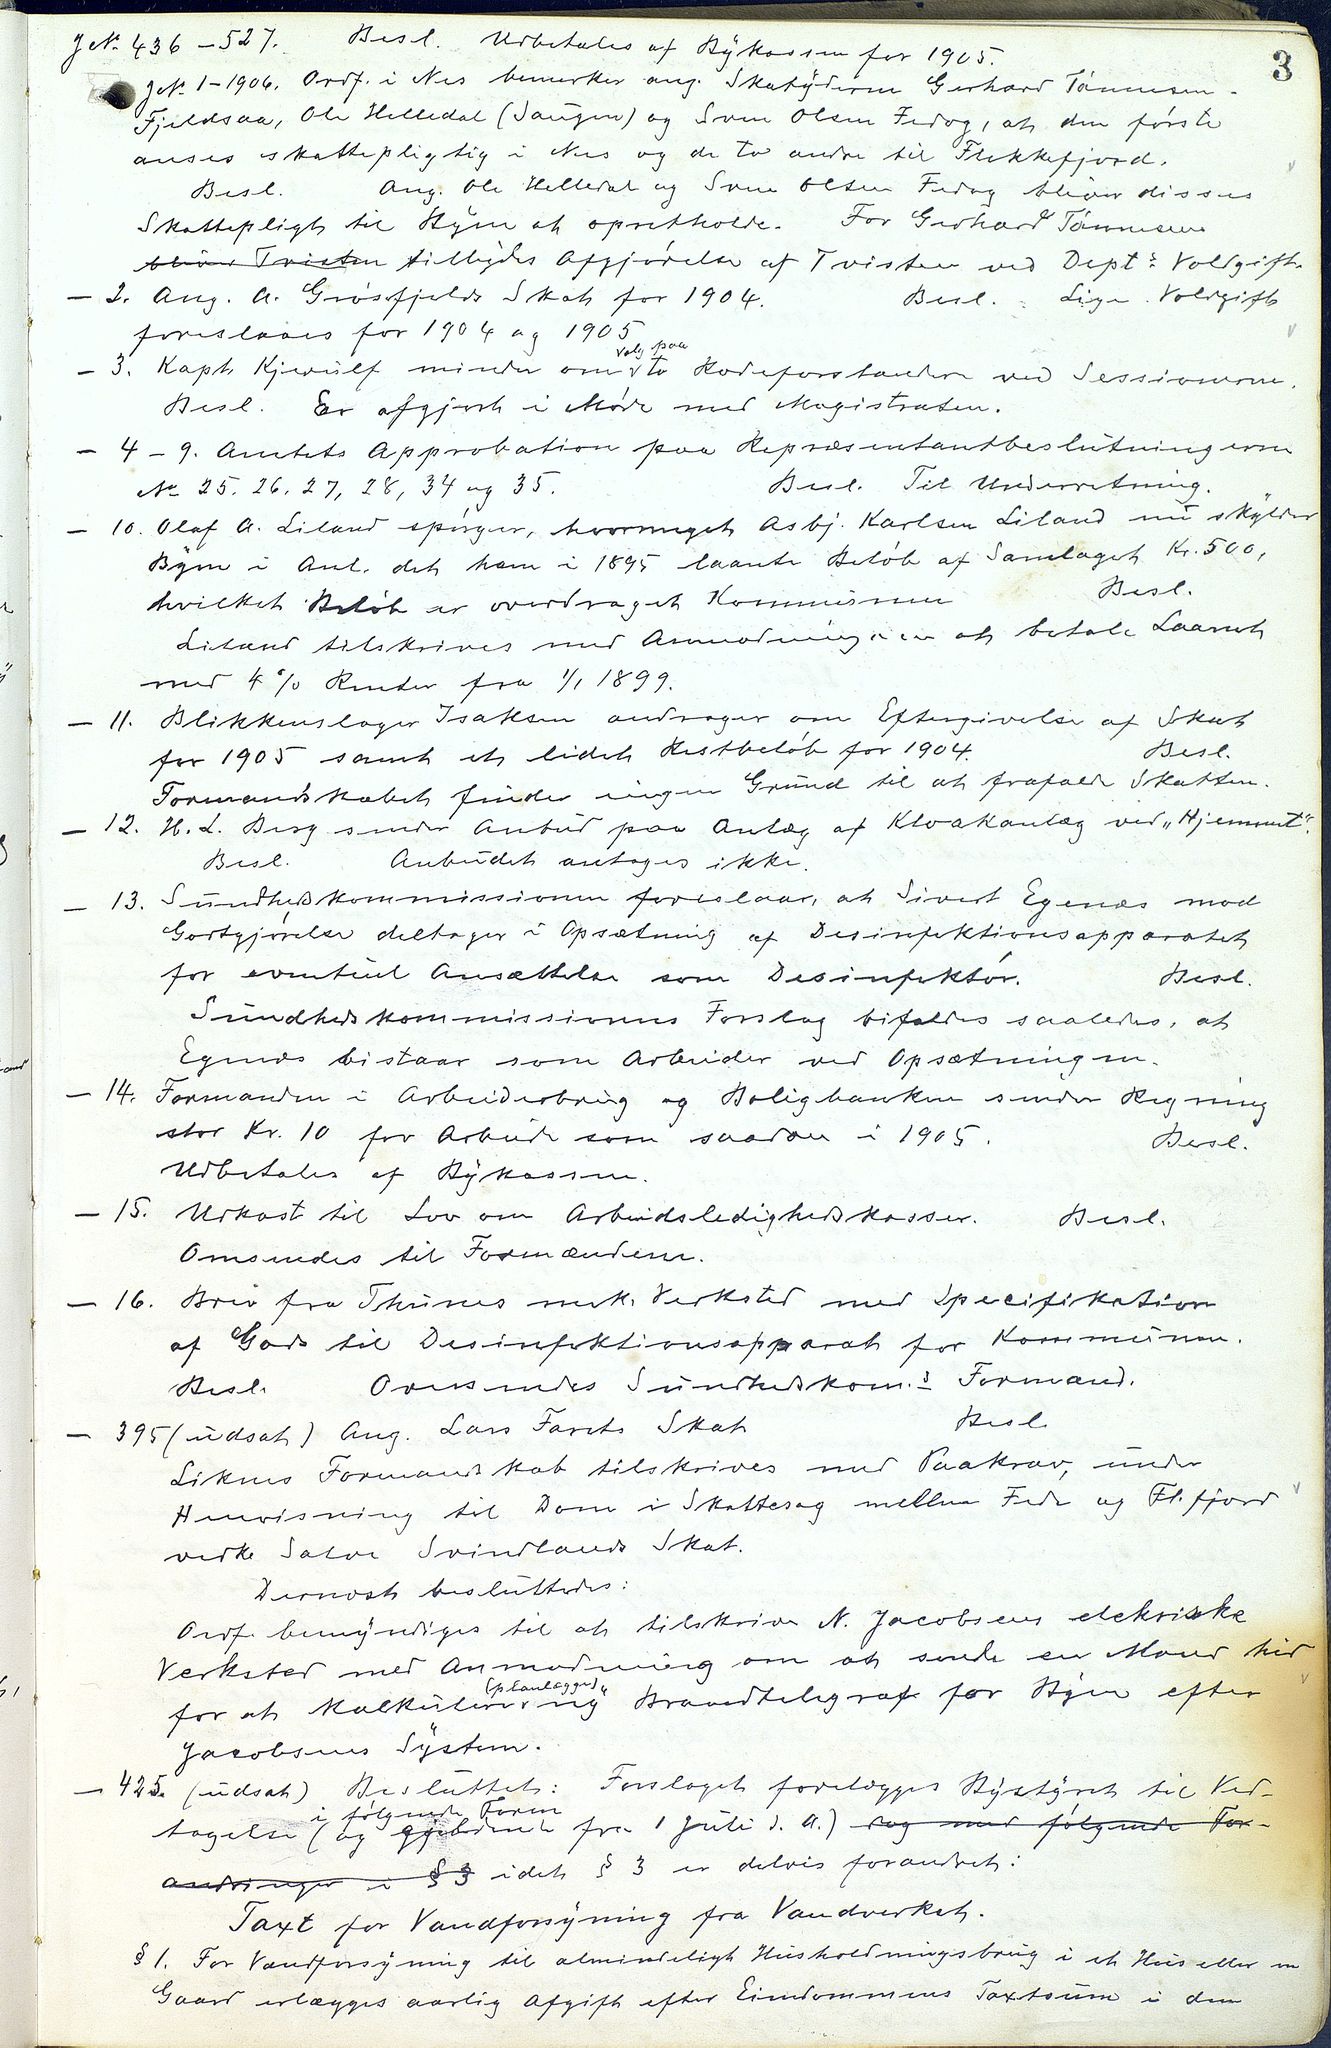 3
J.No. 436 – 527. Besl. Udbetales af Bykassen for 1905.
J.No. 1 – 1906. Ordf. i Nes bemerker ang. Skatyderne Gerhard Tønnesen
Fjeldsaa, Ole Helledal (Saugen) og Sven Olsen Fedog, at den første
anses skattepligtig i Nes og de to andre til Flekkefjord.
Besl. Ang. Ole Helledal og Sven Olsen Fedog bliver disses
Skattepligt til Byen at opretholde. For Gerhard Tønnesen
bliver Tvisten tilbydes Afgjørelse af Tvisten ved Dept.s Voldgift.
– 2. Ang. A. Grøsfjelds Skat for 1904. Besl. Lign. Voldgift
foreslaaes for 1904 og 1905
– 3. Kapt. Kjerulf minder om valg paa to Rodeforstandere ved Sessionerne.
Besl. Er afgjort i Møde med Magistraten.
– 4 – 9. Amtets Approbation paa Repræsentantbeslutningerne
No 25. 26. 27, 28, 34 og 35. Besl. Til Underretning.
– 10. Olaf A. Liland spørger, hvormeget Asbj. Karlsen Liland nu skylder
Byen i Anl. det ham i 1895 laante Beløb af Samlaget Kr. 500,
hvilket Beløb er overdraget Kommunen Besl.
Liland tilskrives med Anmodning om at betale Laanet
med 4 % Renter fra 1/1 1899.
– 11. Blikkenslager Isaksen andrager om Eftergivelse af Skat
for 1905 samt et lidet Restbeløb for 1904. Besl.
Formandskabet finder ingen Grund til at frafalde Skatten.
– 12. H. L. Berg sender Anbud paa Anlæg af Kloakanlæg ved „Hjemmet“.
Besl. Anbudet antages ikke.
– 13. Sundhedskommissionen foreslaar, at Sivert Egenæs mod
Godtgjørelse deltager i Opsætning af Desinfektionsapparatet
for eventuel Ansættelse som Desinfektør. Besl.
Sundhedskommissionens Forslag bifaldes saaledes, at
Egenæs bistaar som Arbeider ved Opsætningen.
– 14. Formanden i Arbeiderbrug og Boligbanken sender Regning
stor Kr. 10 for Arbeide som saadan i 1905. Besl.
Udbetales af Bykassen.
– 15. Udkast til Lov om Arbeidsledighedskasser. Besl.
Omsendes til Formændene.
– 16. Brev fra Thunes mek. Verksted med Specifikation
af Gods til Desinfektionsapparat for Kommunen.
Besl. Oversendes Sundhedskom.s Formand.
– 395 (udsat) Ang. Lars Farets Skat Besl
Liknes Formandskab tilskrives med Paakrav, under
Henvisning til Dom i Skattesag mellem Fede og Fl.fjord
vedk. Salve Svindlands Skat.
Dernæst besluttedes:
Ordf. bemyndiges til at tilskrive N. Jacobsens elektriske
Verksted med Anmodning om at sende en Mand hid
for at kalkulere (planlægge) ny Brandtelegraf for Byen efter
Jacobsens System.
– 425. (udsat) Besluttet: Forslaget forelægges Bystyret til Ved-
tagelse i følgende Form (og gjeldende fra 1 Juli d. A.) dog med følgende For-
andringer i § 3 idet § 3 er delvis forandret:
Taxt for Vandforsyning fra Vandverket.
§ 1. For Vandforsyning til almindeligt Husholdningsbrug i et Hus eller en
Gaard erlægges aarlig Afgift efter Eiendommens Taxtsum i den